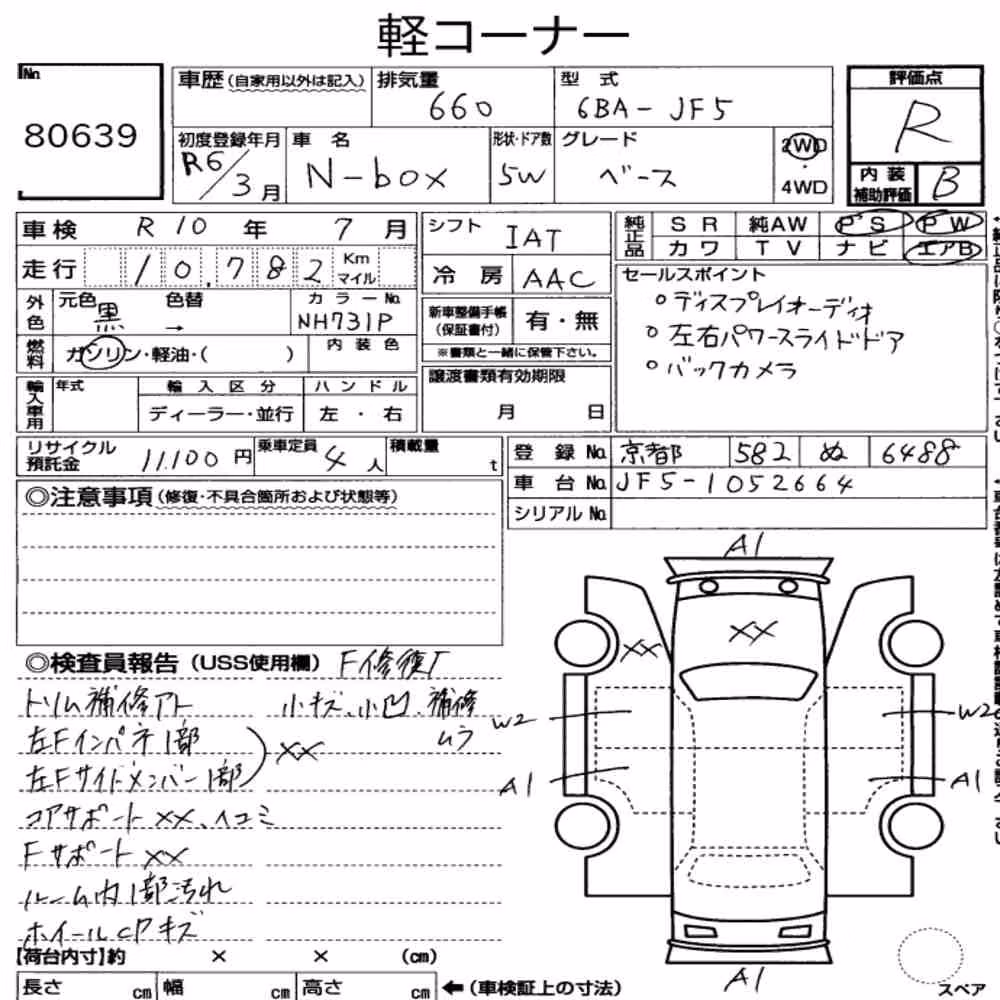 軽コーナー
No.
80639
車歴 (自家用以外は記入)
排気量
660
型 式
6BA-JF5
評価点
R
初度登録年月
R6/3月
車 名
N-box
形状・ドア数
5W
グレード
ベース
2WD
・
4WD
内 装
補助評価
B
車検 R 10 年 7 月
走行 10,782 Km
マイル
シフト
IAT
冷 房
AAC
純正品
S R 純AW P S P W
カ ワ T V ナ ビ エアB
外色
元色
黒
色替
→
カ ラ ー No.
NH731P
燃料
ガソリン・軽油・( )
内 装 色
新車整備手帳
(保証書付)
有・無
※書類と一緒に保管下さい。
セールスポイント
○ディスプレイオーディオ
○左右パワースライドドア
○バックカメラ
輸入車用
年式
輸 入 区 分
ディーラー・並行
ハ ン ド ル
左 ・ 右
譲渡書類有効期限
月 日
リサイクル
預託金
11,100 円
乗車定員
4 人
積載量
t
登 録 No. 京都 582 ぬ 6488
車 台 No. JF5-1052664
シリアル No.
◎注意事項 (修復・不具合箇所および状態等)
◎検査員報告 (USS使用欄) F修復歴
トリム補修アト 小キズ、小凹、補修
ムラ
左Fインパネ1部
左Fサイドメンバー1部
) XX
コアサポート XX、ヘコミ
Fサポート XX
ルーム内1部汚れ
ホイールcPキズ
A1
XX
XX
W2
W2
A1
A1
A1
スペア
【荷台内寸】約 × × (cm)
長さ cm 幅 cm 高さ cm ←(車検証上の寸法)